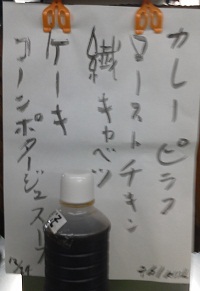 カレーピラフ
ローストチキン
繊キャベツ
ケーキ
コーンポタージュスープ
12/24